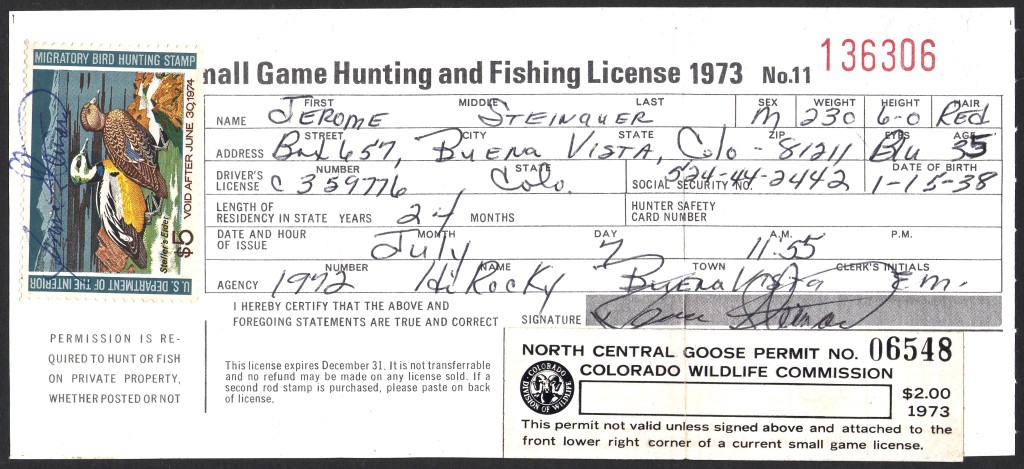 mall Game Hunting and Fishing License 1973 No.11 136306
MIGRATORY BIRD HUNTING STAMP
VOID AFTER JUNE 30, 1974
$5
Steller's Eider
U.S. DEPARTMENT OF THE INTERIOR
FIRST MIDDLE LAST SEX WEIGHT HEIGHT HAIR
NAME JEROME STEINAUER M 230 6-0 Red
STREET CITY STATE ZIP EYES AGE
ADDRESS Box 657, BUENA VISTA, Colo - 81211 Blu 35
DRIVER'S LICENSE NUMBER C 359776 STATE Colo. SOCIAL SECURITY NO. 524-44-2442 DATE OF BIRTH 1-15-38
LENGTH OF RESIDENCY IN STATE YEARS 24 MONTHS HUNTER SAFETY CARD NUMBER
DATE AND HOUR OF ISSUE MONTH July DAY 7 A.M. 11:55 P.M.
NUMBER NAME TOWN CLERK'S INITIALS
AGENCY 1972 Hi Rocky Buena Vista E.m.
I HEREBY CERTIFY THAT THE ABOVE AND
FOREGOING STATEMENTS ARE TRUE AND CORRECT SIGNATURE
PERMISSION IS RE-
QUIRED TO HUNT OR FISH
ON PRIVATE PROPERTY,
WHETHER POSTED OR NOT
This license expires December 31. It is not transferable
and no refund may be made on any license sold. If a
second rod stamp is purchased, please paste on back
of license.
NORTH CENTRAL GOOSE PERMIT NO. 06548
COLORADO WILDLIFE COMMISSION
COLORADO DIVISION OF WILDLIFE
$2.00
1973
This permit not valid unless signed above and attached to the
front lower right corner of a current small game license.